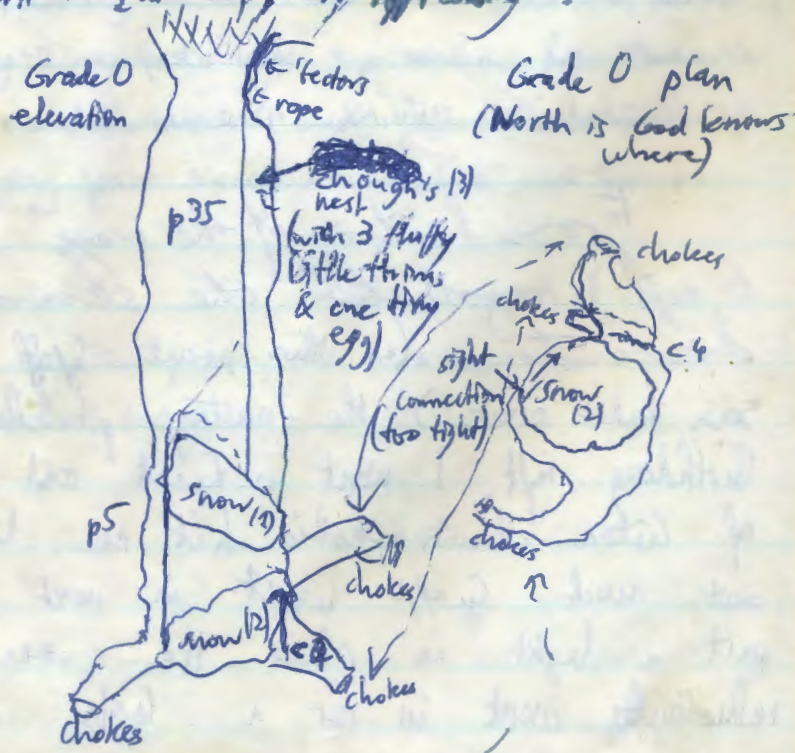 Grade 0
elevation
vectors
rope
p35
Chough's (3)
nest
(with 3 fluffy
little things
& one tiny
egg)
snow (1)
p5
snow (2)
c4
chokes
chokes
chokes
Grade 0 plan
(North is God knows
where)
chokes
chokes
c4
sight
connection
(too tight)
snow
(2)
chokes